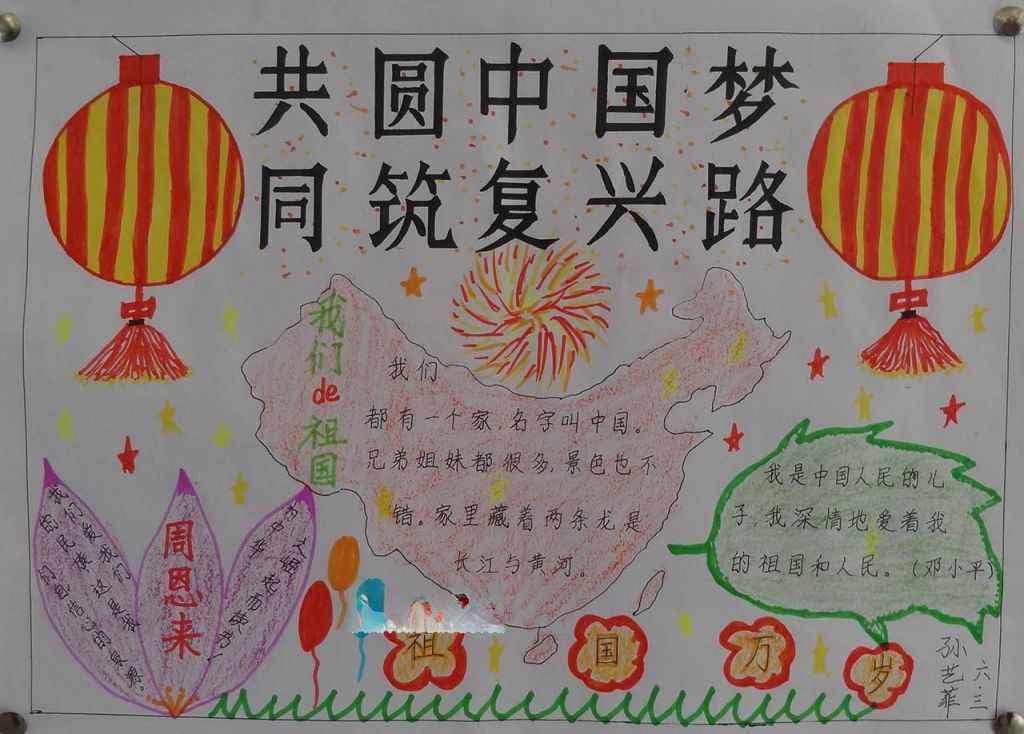 共圆中国梦
同筑复兴路
我们de祖国
我们
都有一个家,名字叫中国。
兄弟姐妹都很多,景色也不
错。家里藏着两条龙是
长江与黄河。
我是中国人民的儿
子,我深情地爱着我
的祖国和人民。(邓小平)
我们爱我们
的民族 这是我
们自信心的
周恩来
为中华
之崛起而读书!
祖国万岁
孙艺菲
六.三